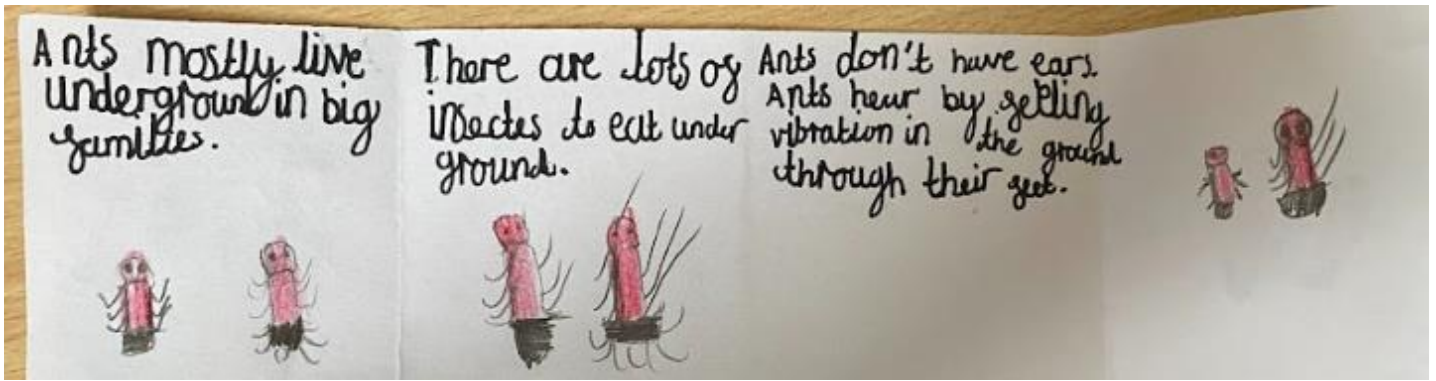 Ants mostly live
underground in big
families.
There are lots of
insectes to eat under
ground.
Ants don't have ears.
Ants hear by getting
vibration in the ground
through their feet.